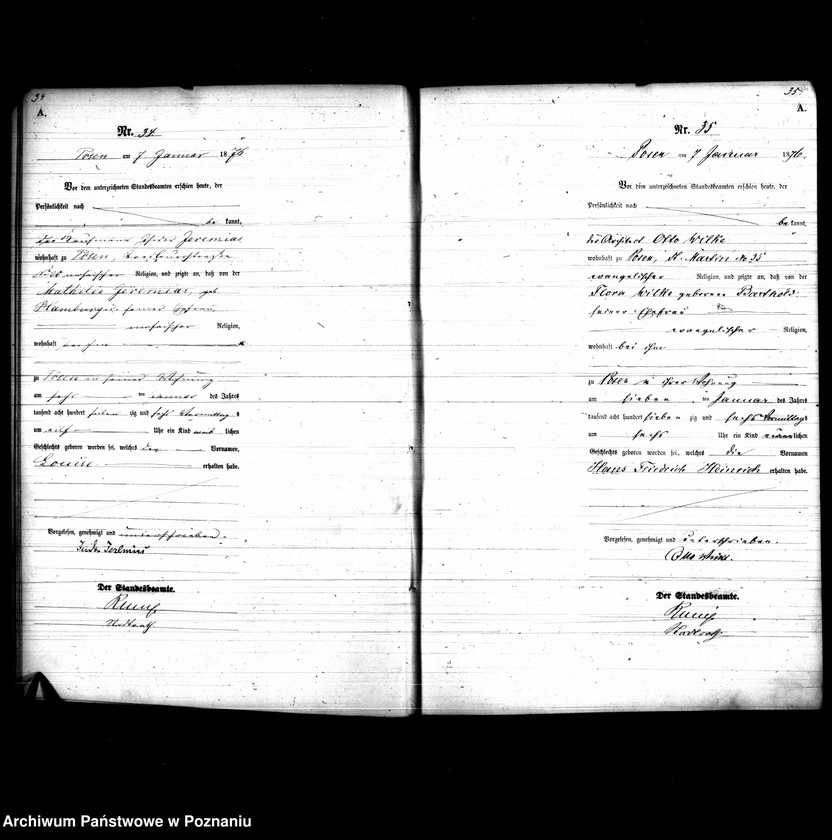 34
A.
Nr. 34
Posen am 7 Januar 1876
Vor dem unterzeichneten Standesbeamten erschien heute, der
Persönlichkeit nach
bekannt,
der Kaufmann Jeremias
wohnhaft zu Posen,
mosaischer Religion, und zeigte an, daß von der
Mathilde Jeremias, geb.
Hamburger, seiner Ehefrau
mosaischer Religion,
wohnhaft
zu Posen in seiner Wohnung
am Januar des Jahres
tausend acht hundert sieben zig und sechs Vormittags
um Uhr ein Kind weiblichen
Geschlechts geboren worden sei, welches den Vornamen,
Louise erhalten habe.
Vorgelesen, genehmigt und unterschrieben.
Jeremias
Der Standesbeamte.
Stadtrath
35.
A.
Nr. 35
Posen am 7 Januar 1876.
Vor dem unterzeichneten Standesbeamten erschien heute, der
Persönlichkeit nach
bekannt,
der Architect Otto Wilke
wohnhaft zu Posen, St. Martin No 35
evangelischer Religion, und zeigte an, daß von der
Flora Wilke geborene Barthold
seiner Ehefrau
evangelischer Religion,
wohnhaft bei ihm
zu Posen in ihrer Wohnung
am sieben ten Januar des Jahres
tausend acht hundert sieben zig und sechs Vormittags
um sechs Uhr ein Kind männlichen
Geschlechts geboren worden sei, welches die Vornamen
Hans Friedrich Heinrich erhalten habe.
Vorgelesen, genehmigt und unterschrieben.
Otto Wilke.
Der Standesbeamte.
Stadtrath
Archiwum Państwowe w Poznaniu